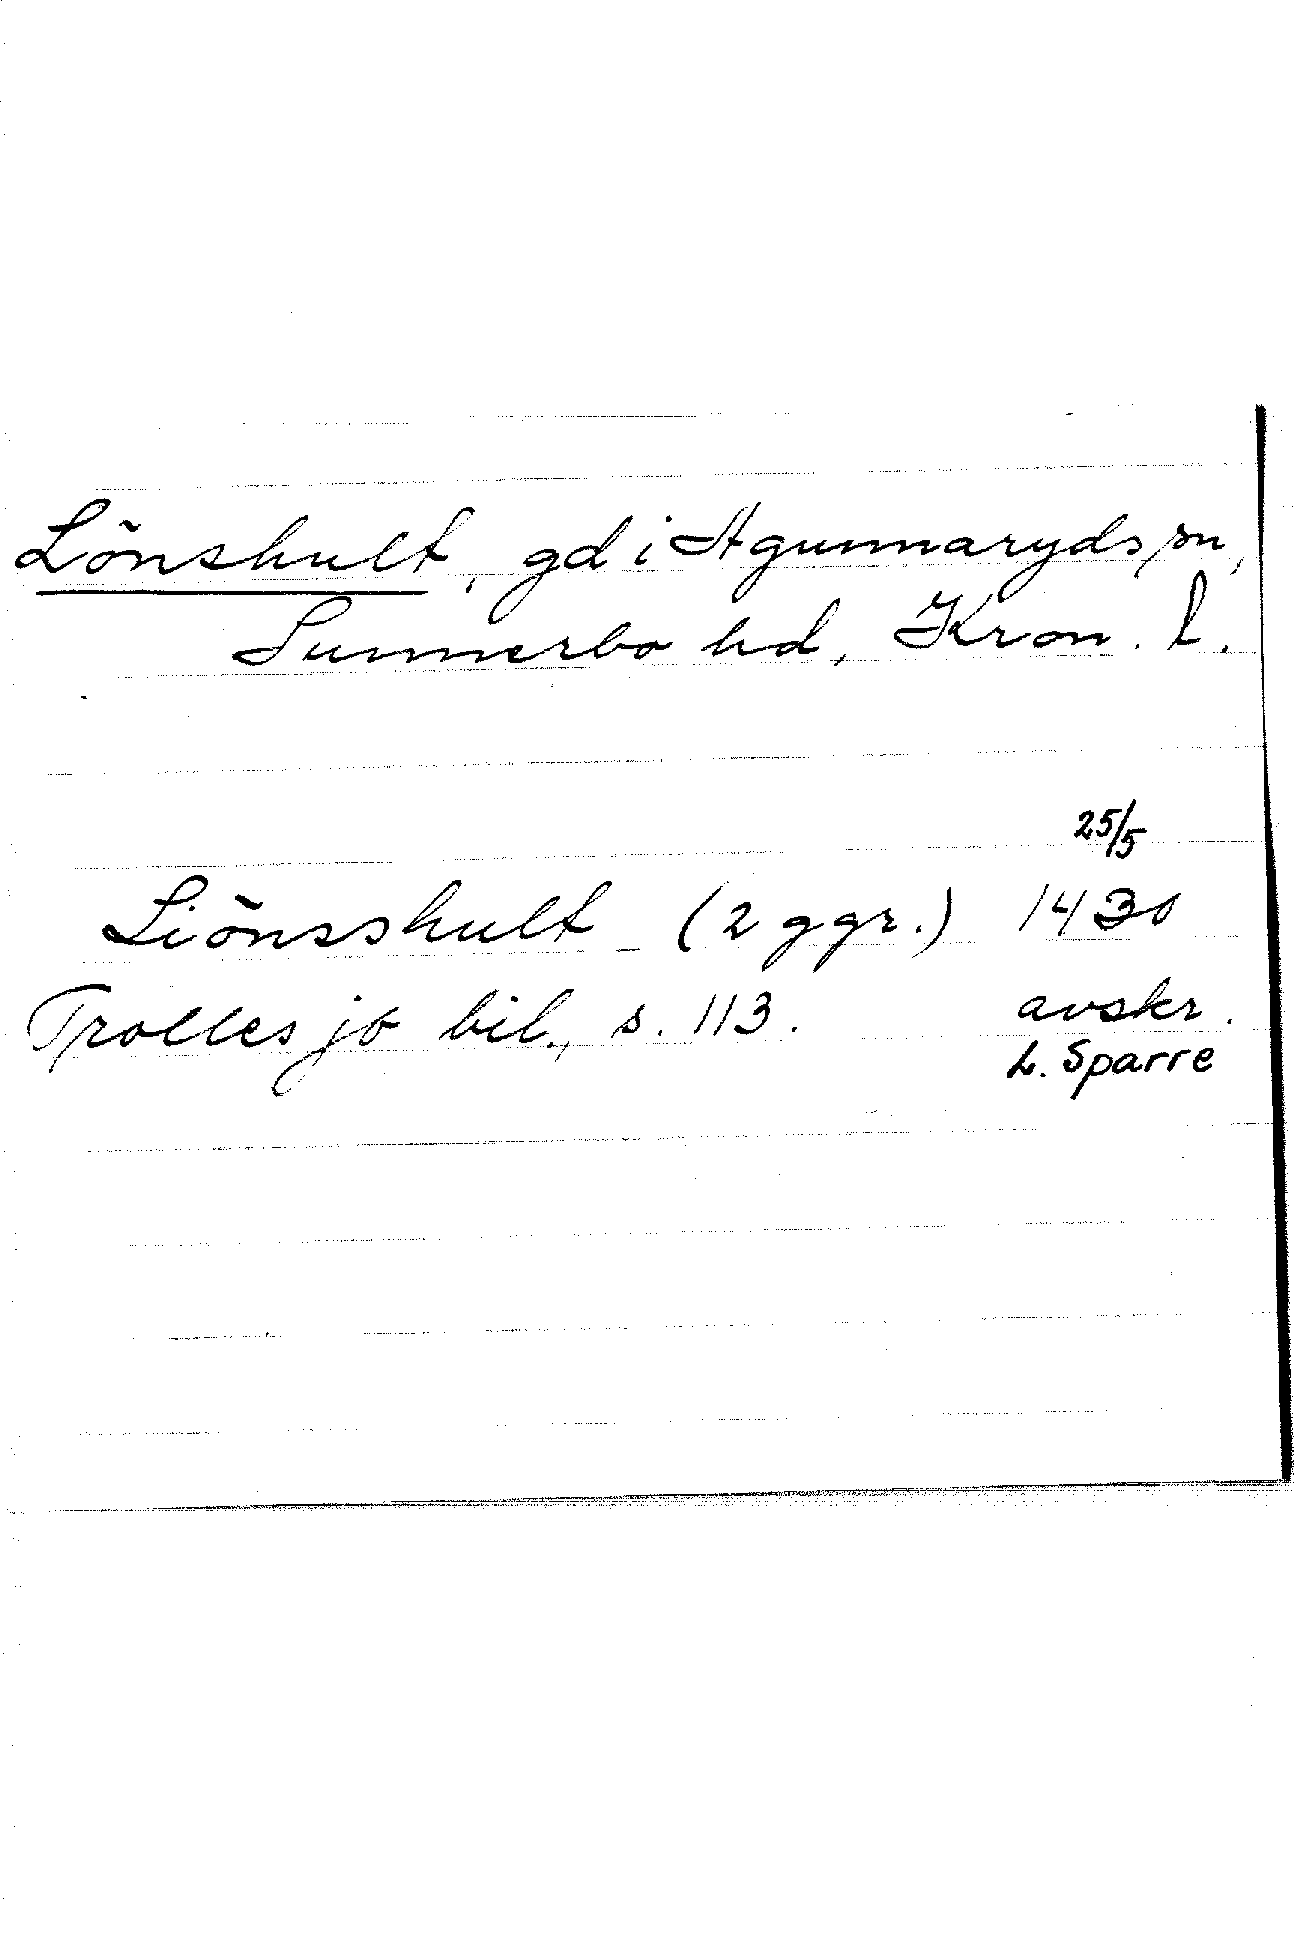 Lönshult, gd i Agunnaryds sn,
Sunnerbo hd, Kron. l.
25/5
Liönsshult (2 ggr.) 1430
Trolles jb bil., s. 113. avskr.
L. Sparre